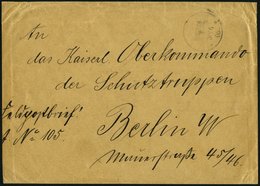 An
das Kaiserl Oberkommando
der Schutztruppen
Feldpostbrief
A No 105.
Berlin W
Mauerstraße 45/46.